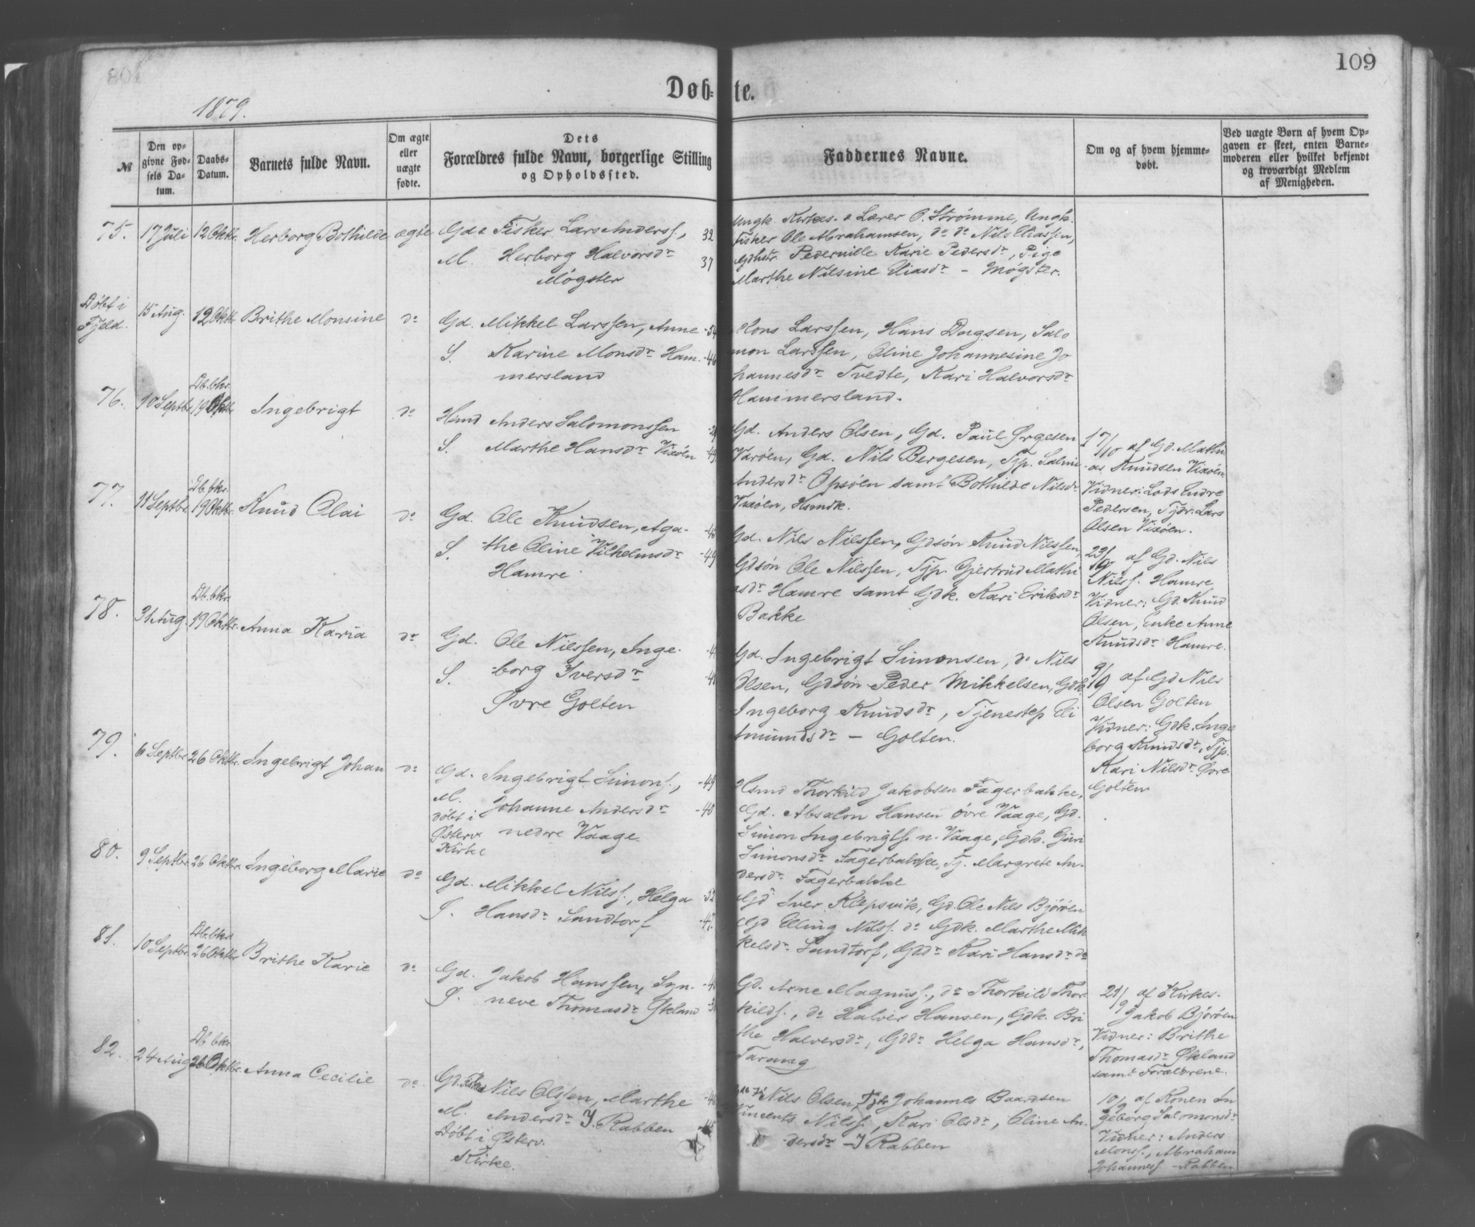 109
Døb= te.
1879.
№
Den op=
givne Fød=
sels Da=
tum.
Daabs=
Datum.
Barnets fulde Navn.
Om ægte
eller
uægte
fødte.
Dets
Forældres fulde Navn, borgerlige Stilling
og Opholdssted.
Faddernes Navne.
Om og af hvem hjemme=
døbt.
Ved uægte Børn af hvem Op=
gaven er skeet, enten Barne=
moderen eller hvilket bekjendt
og troværdigt Medlem
af Menigheden.
75. 17 Juli 12 Oktbr. Herborg Bothilde ægte
Gd & Fisker Lars Anderss., 32
M. Herborg Halvorsdr 37
Møgster
Ungk. Kirkes. & Lærer O. Strømme, Ungk.
Fisker Ole Abrahamsen, do do Nils Eliassen,
Pedernille Karie Pedersdr, Pige
Marthe Nilsine Eliasdr - Møgster.
Døbt i
Fjeld.
15 Aug. 12 Oktbr. Brithe Monsine do
Gd. Mikkel Larssen, Anne -54
S. Karine Monsdr Ham- -46
mersland
Mons Larssen, Hans Dagsen, Salo
mon Larssen, Oline Johannesine Jo
hannesdr Tvedte, Kari Halvorsdr
Hammersland.
76. 10 Septbr. Db. bkr. 19 Oktbr. Ingebrigt do
Hsmd Anders Salomonssen
S. Marthe Hansdr Vixøen -49
Gd. Anders Olsen, Gd. Paul Ørgesen
Varøen, Gd. Nils Bergesen, Tjp. Salmine
Andersdr Opsøen samt Bothilde Nilsdr
Vixøen, Hsmdk.
17/10 af Gd. Mathi
as Knudsen Vixøen
Vidner: Lods Endre
Pedersen, Tjdr. Lars
Olsen Vixøen.
77. 11 Septbr. Db. bkr. 19 Oktbr. Knud Olai do
Gd. Ole Knudsen, Aga-
S. the Oline Vilhelmsdr -49
Hamre
Gd. Nils Nilssen, Gdsøn Knud Nilssen,
Gdsøn Ole Nilssen, Tjp. Gjertrud Mathi
asdr Hamre samt Gdk. Kari Eriksdr
Bakke
af Gd. Nils
Nilss. Hamre
Vidner: Gd. Knud
Olsen, Enke Anne
Knudsdr Hamre.
78. 31 Aug. Db. bkr. 19 Oktbr. Anna Karia do
Gd. Ole Nilssen, Inge-
S. borg Iversdr
Øvre Golten
Gd. Ingebrigt Simonsen, do Nils
Olsen, Gdsøn Peder Mikkelsen, Gdk.
Ingeborg Knudsdr, Tjenestep. Eli
Amundsdr - Golten.
9/9 af Gd Nils
Olsen Golten
Vidner: Gdk. Inge
borg Knudsdr, Tjp.
Kari Nilsdr Øvre
Golten
79. 6 Septbr. 26 Oktbr. Ingebrigt Johan do
Gd. Ingebrigt Simons., -49
M. Johanne Andersdr -48
Døbt i nedre Vaage
Østerv.
Kirke
Hsmd Thorkild Jakobsen Fagerbakke,
Gd. Absalon Hansen øvre Vaage, Gd.
Simon Ingebrigts. n. Vaage, Gdk. Guri
Simonsdr Fagerbakke, Tj. Margrete An-
dersdr Fagerbakke
80. 9 Septbr. 26 Oktbr. Ingeborg Marie do
Gd. Mikkel Nilss., Helga
S. Hansdr Sandtorf
Gd Iver Klepsvik, Gd. Ole Nils Bjørøen
Gd Elling Nilss. do Gdk. Marthe Mik
kelsdr Sandtorf, Gddr Kari Hansdr do
81. 10 Septbr. Db. bkr. 26 Oktbr. Brithe Karie do
Gd. Jakob Hanssen, Syn-
S. neve Thomasdr Økland
Gd. Arne Magnuss., do Thorkild Thor
kilds., do Halvor Hansen, Gdk. Bri
the Halversdr, Gddr Helga Hansdr,
Tarang
21/9 af Kirkes.
Jakob Bjørøen
Vidner: Brithe
Thomasdr Økland
samt Forældrene.
82. 24 Aug Db. bkr. 26 Oktbr. Anna Cecilie do
Gd. Fisker Nils Olssen, Marthe
M. Andersdr I. Rabben
Døbt i Østerv.
Kirke.
Nils Olsen, Johannes Baardsen
Vincents Nilss., Kari Olsdr, Oline An-
dersdr - I Rabben
10/9 af Konen In
geborg Salomonsdr
Vidner: Anders
Monss., Abraham
Johanness. - Rabben